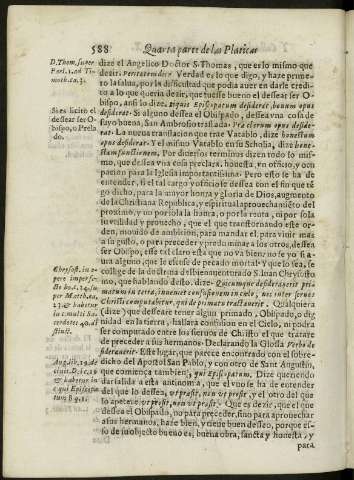 588 Quarta parte de las Platicas
D. Thom. super
Par. l. ad Ti-
moth. ca. 3.
Si es licito el
dessear ser O-
bispo, o Prela
do.
Chrysost. in o-
pere imperfec.
ho.
sup
per Matth. ca.
& habetur
in c. multi Sa-
cerdotes 40. di
stinct.
Aug. lib. 19. de
ciuit. D. c. 19
& habetur in
c. qui Episcopa-
tum 8. q. 1.
dize el Angelico Doctor S. Thomas, que es lo mismo que
dezir. Verdad es lo que digo, y haze prime-
ro la salua, por la dificultad que podia auer en darle credi-
to a lo que queria dezir, que fuesse bueno el dessear ser O-
bispo, ansi lo dize, si quis Episcopatum desiderat, bonum opus
desiderat. Si alguno dessea el Obispado, dessea vna cosa de
suyo honesta, San Ambrosio traslada: opus deside-
rat. La nueua translacion que trae Vatablo, dize honestum
opus desiderat. Y el mismo Vatablo en su Scholia, dize hone-
stam functionem. Por diuersos terminos dizen todo lo mis-
mo, que dessea vna cosa preclara, honesta, vn oficio, y ocu-
pacion para la Iglesia importantissima: Pero esto se ha de
entender, si el tal cargo y oficio le dessea con el fin que tē
go dicho, para la mayor honra y gloria de Dios, augmento
de la Christiana Republica, y espiritual aprouechamiēto del
proximo, y no por sola la honra, o por la renta, ni por sola
su vtilidad y prouecho, que el que trastornando este or-
den, mouido de ambicion, para mandar, el para viuir mas
a su gusto, o para preceder y predominar a los otros, dessea
ser Obispo, este tal claro està que no va bien: no se yo si a-
ura alguno, que le escuse de pecado mortal: Y que lo sea, se
collige de la doctrina del bienauenturado S. Iuan Chrysosto
mo, que hablando desto, dize: Quicumque desiderauerit pri-
matum in terra, inueniet confusionem in cœlo, nec inter seruos
Christi computabitur, qui de primatu tractauerit. Qualquiera
(dize) que desseare tener algun primado, Obispado, o dig
nidad en la tierra, hallara confusion en el Cielo, ni podra
ser computado entre los sieruos de Christo el que tratare
de preceder a sus hermanos. Declarando la Glossa Verbo de-
siderauerit. Este lugar, que parece encontrado con el sobre-
dicho del Apostol San Pablo, y con otro de Sant Augustin,
que comiença tambien, qui Episcopatum. Dize queriendo
dar salida a esta antinomia, que el vno se ha de entender
del que lo dessea, vt prosit, non vt præsit, y el otro del que
lo apetece, vt præsit, non vt prosit. Que es dezir, que el que
dessea el Obispado, no para preceder, sino para aprouechar
a sus hermanos, haze bien, y tiene buen desseo, porque es-
so de su objecto bueno es, buena obra, sancta y honesta, y
para